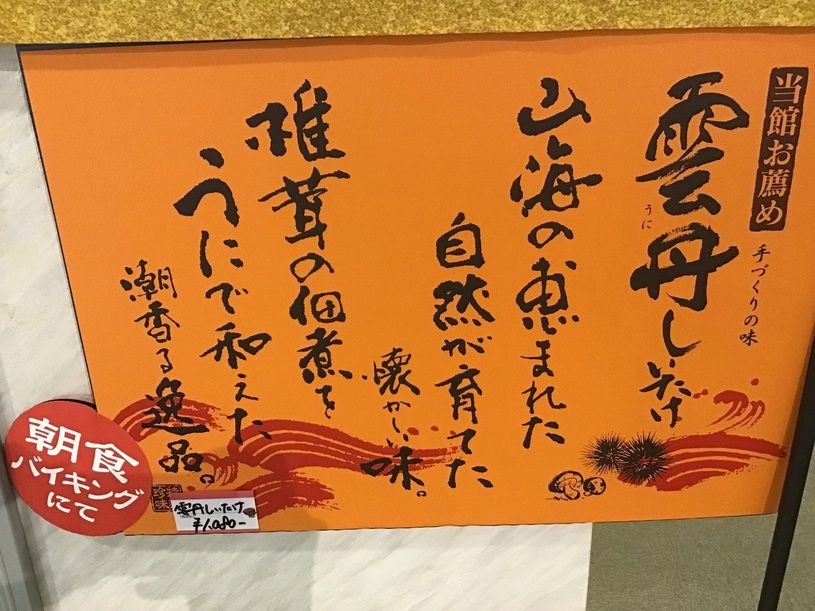 当館お薦め
手づくりの味
雲丹しいたけ
うに
山海の恵まれた
自然が育てた
懐かしい味。
椎茸の佃煮を
うにで和えた
潮香る逸品。
朝食
バイキング
にて
雲丹しいたけ
¥1,080-